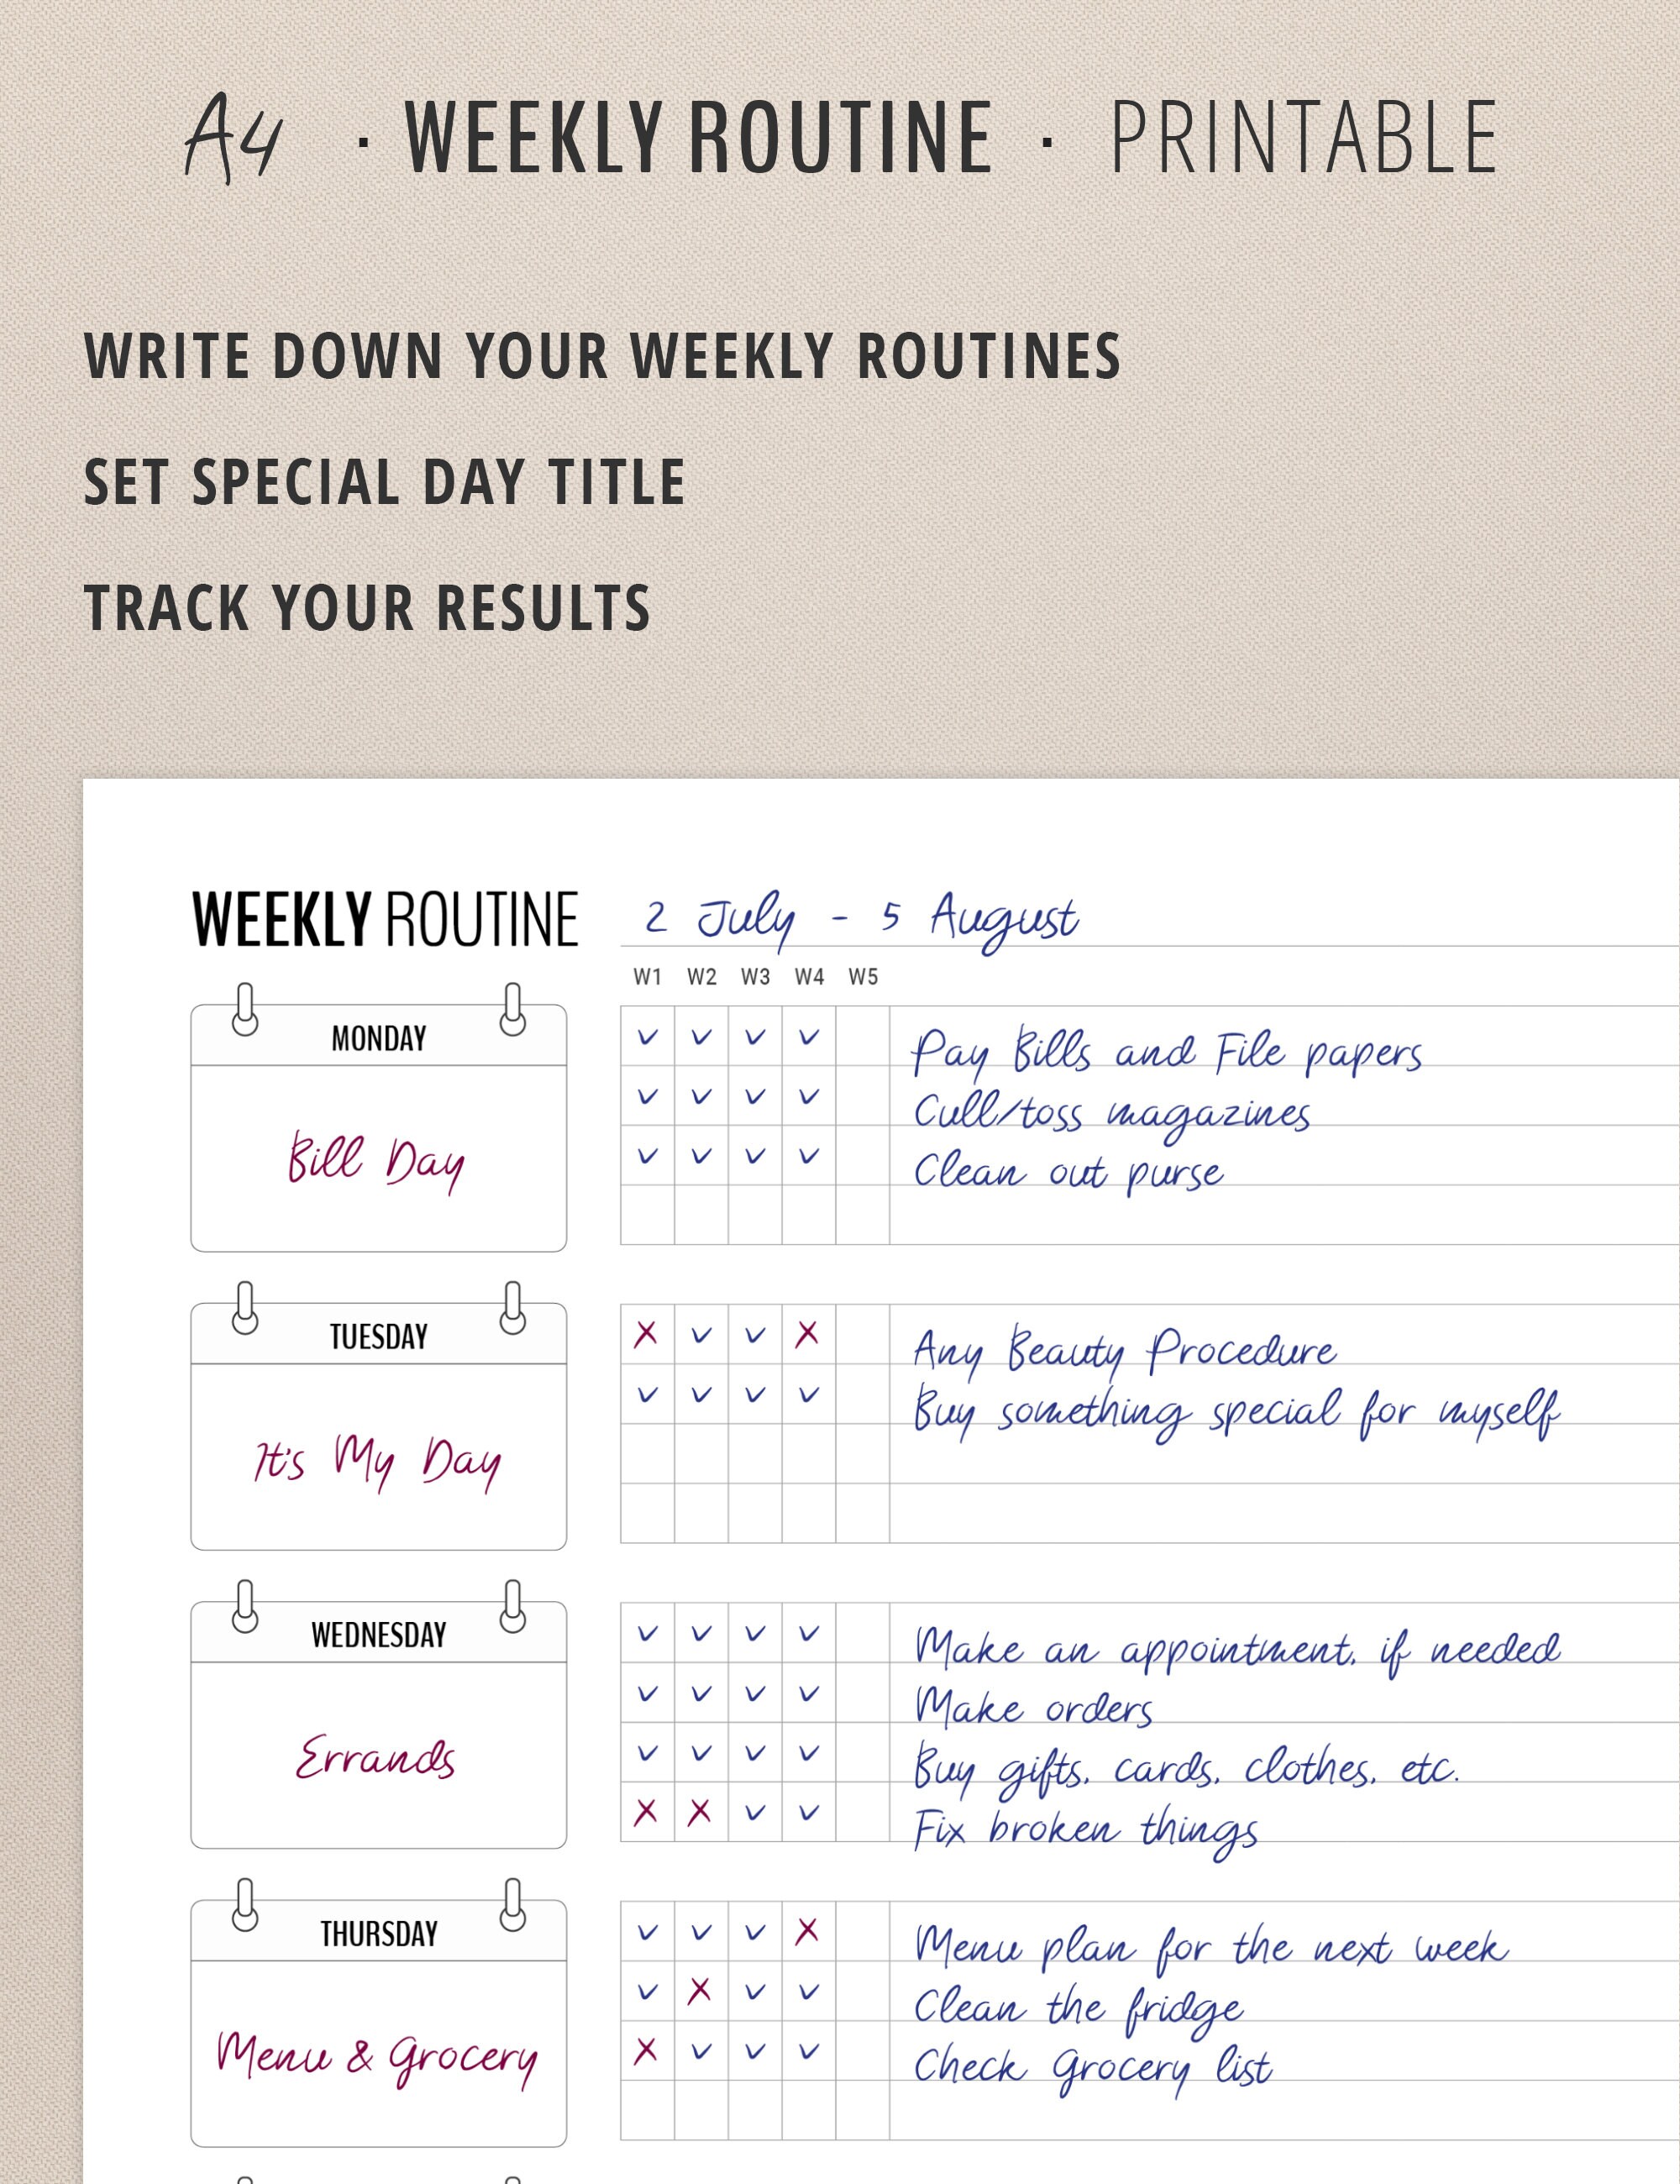 A4 · WEEKLY ROUTINE · PRINTABLE
WRITE DOWN YOUR WEEKLY ROUTINES
SET SPECIAL DAY TITLE
TRACK YOUR RESULTS
WEEKLY ROUTINE 2 July - 5 August
W1 W2 W3 W4 W5
MONDAY
Bill Day
✓ ✓ ✓ ✓ Pay Bills and File papers
✓ ✓ ✓ ✓ Cull/toss magazines
✓ ✓ ✓ ✓ Clean out purse
TUESDAY
It's My Day
X ✓ ✓ X Any Beauty Procedure
✓ ✓ ✓ ✓ Buy something special for myself
WEDNESDAY
Errands
✓ ✓ ✓ ✓ Make an appointment, if needed
✓ ✓ ✓ ✓ Make orders
✓ ✓ ✓ ✓ Buy gifts, cards, clothes, etc.
X X ✓ ✓ Fix broken things
THURSDAY
Menu & Grocery
✓ ✓ ✓ X Menu plan for the next week
✓ X ✓ ✓ Clean the fridge
X ✓ ✓ ✓ Check Grocery list